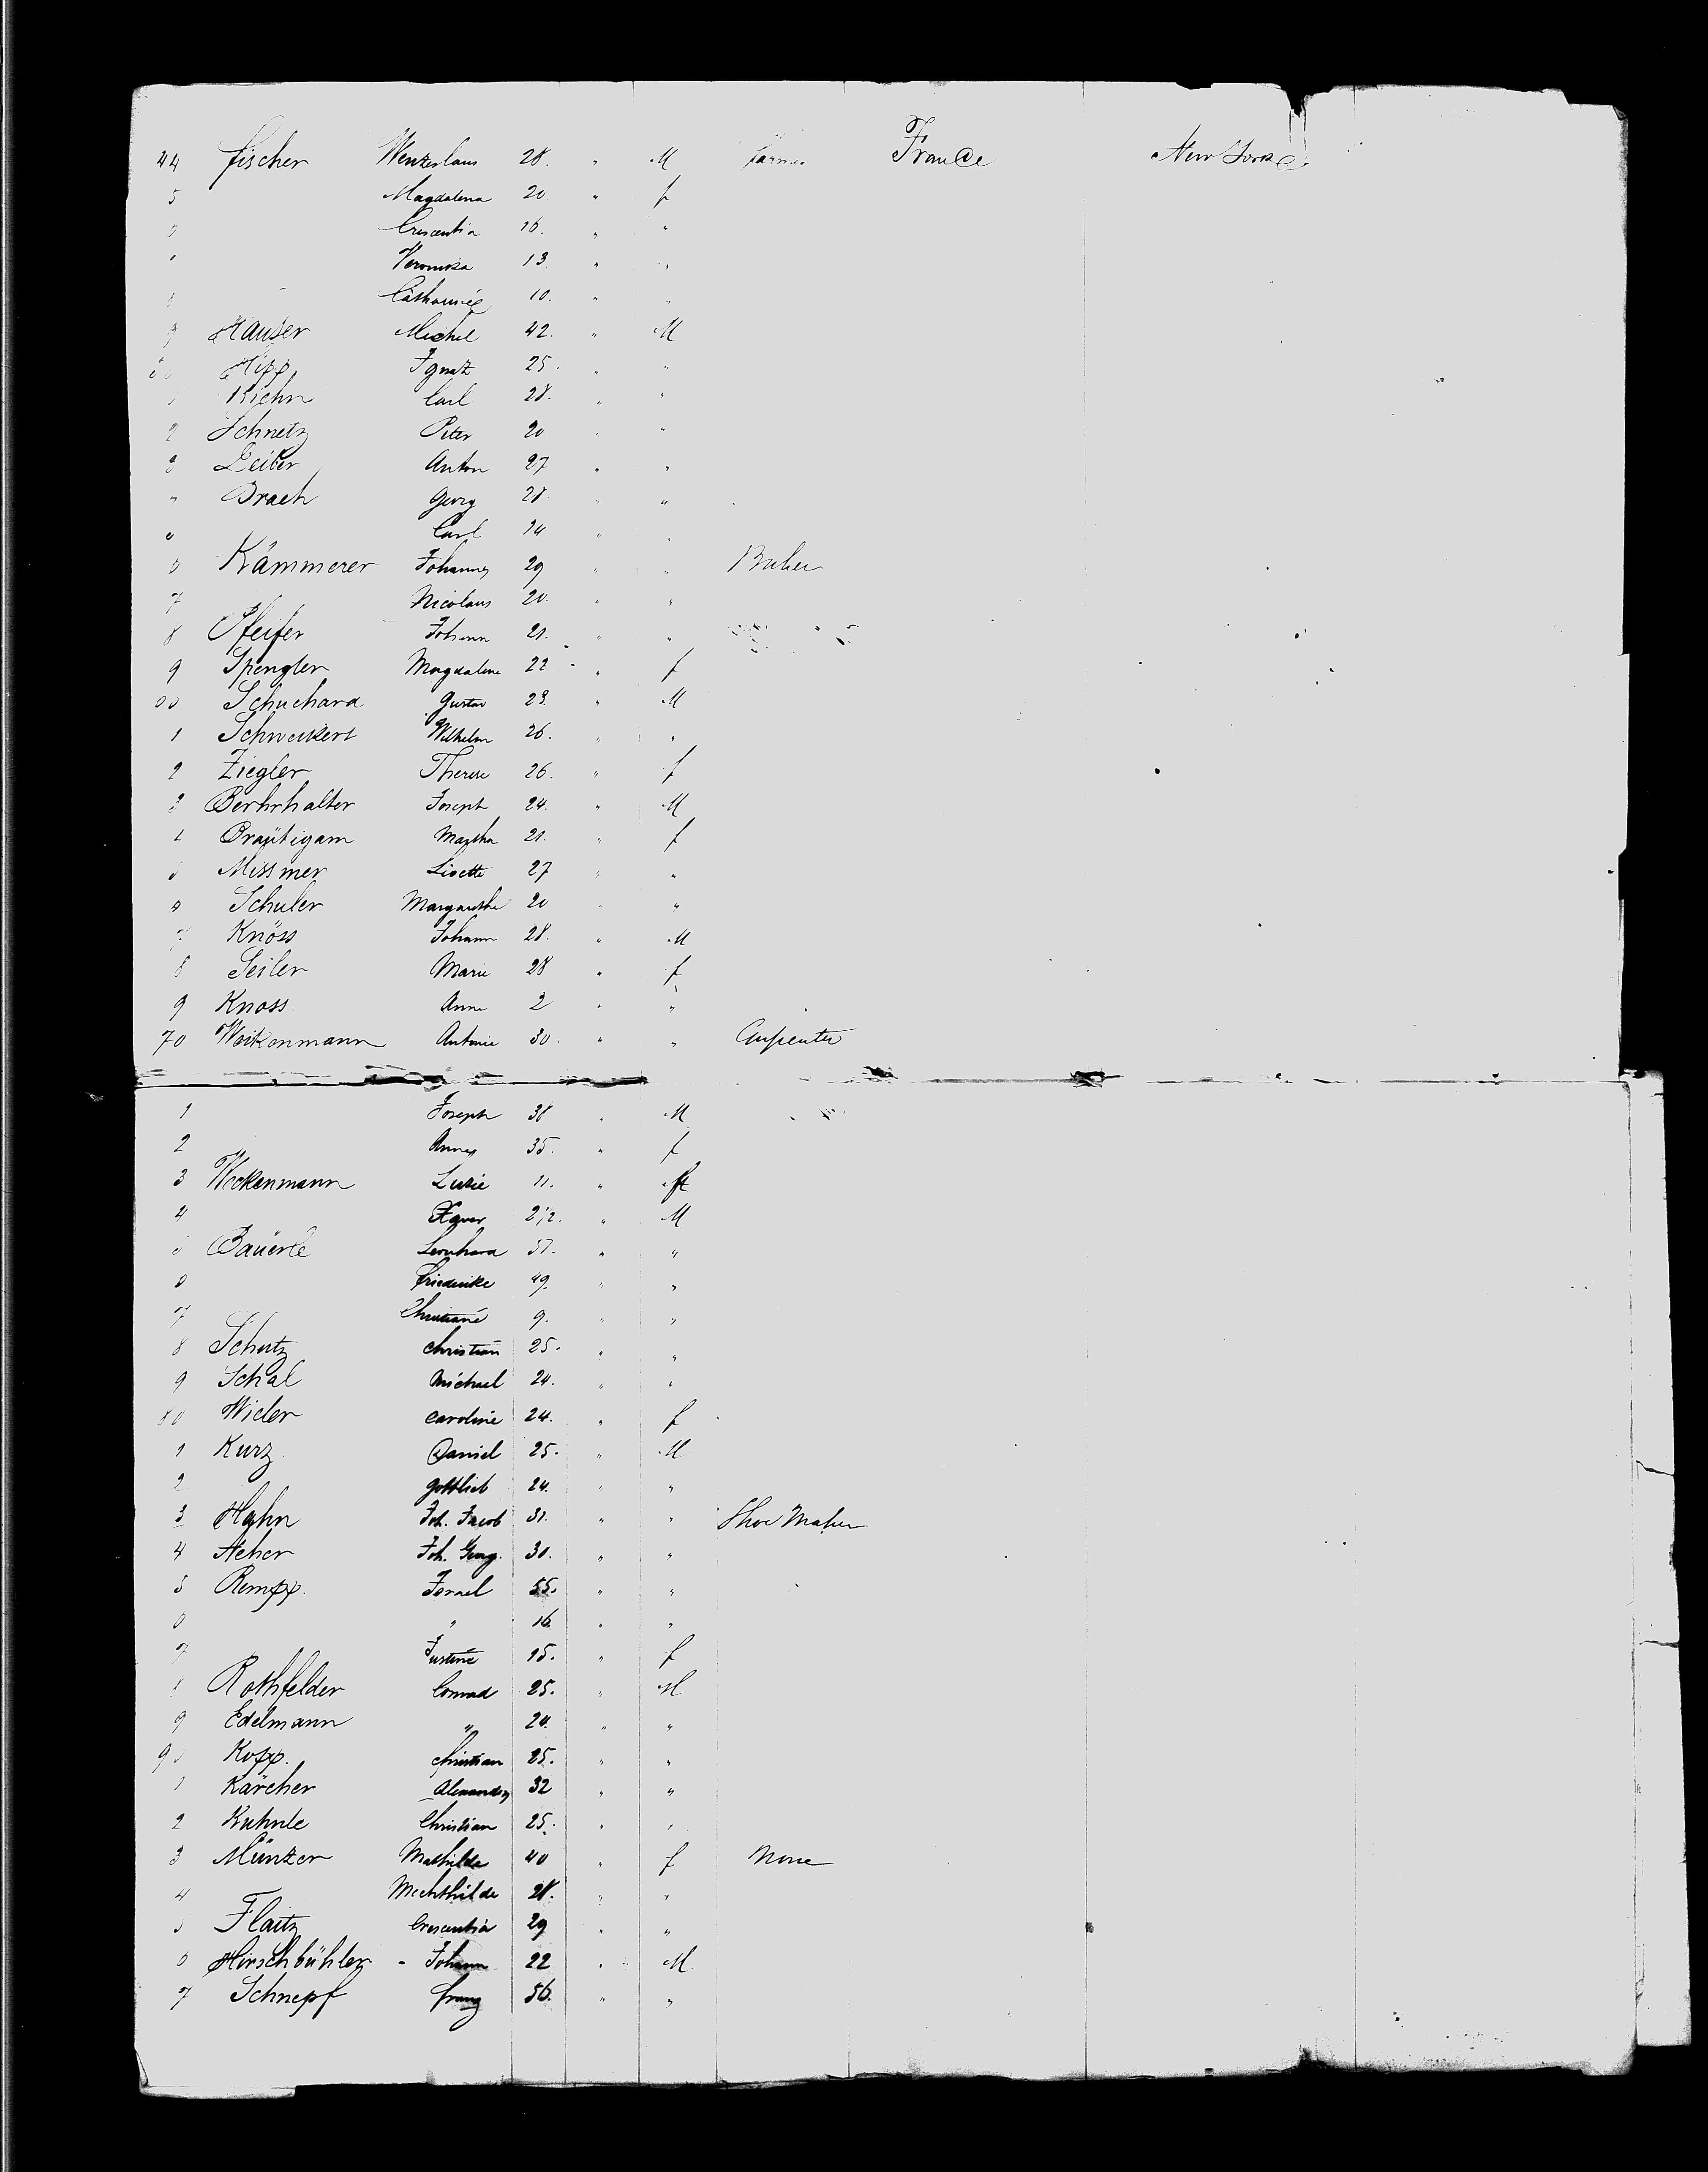 44 Fischer Wenzeslaus 28. " M Farmer France New York
5 Magdalena 20 " f
Crescentia 16. " "
Veronika 13 " "
Catharine 10. " "
9 Hauser Michel 42. " M
Hipp Ignatz 25. " "
Kiehn Carl 28. " "
2 Schnetz Peter 20 " "
3 Leiber Anton 27 " "
" Brach Georg 28 " "
Carl 14 " "
Kämmerer Johannes 29 " " Baker
7 Nicolaus 20. " "
8 Pfeifer Johann 21. " "
9 Spengler Magdalena 22 " f
Schuchard Gustav 23. " M
1 Schweikert Wilhelm 26. " "
2 Ziegler Therese 26. " f
3 Berhrhalter Joseph 24. " M
4 Bräutigam Martha 21. " f
Missmer Lisette 27 " "
Schuler Margarethe 20 " "
7 Knöss Johann 28. " M
8 Seiler Marie 28 " f
9 Knoss Anne 2 " "
70 Weikenmann Antonie 30. " " Carpenter
1 Joseph 38 " M
2 Annes 35. " f
3 Weckenmann Luzie 11. " f
4 Xaver 2 1/2. " M
Bäuerle Leonhard 57. " "
Friederike 49. " "
7 Christiane 9. " "
8 Schutz Christian 25. " "
9 Schal Michael 24. " "
80 Wider Caroline 24. " f
1 Kurz Daniel 25. " M
2 Gottlieb 24. " "
3 Hahn Joh. Jacob 31. " " Shoe Maker
4 Acher Joh. Georg. 30. " "
5 Rempp. Israel 55. " "
" 16. " "
7 Justine 15. " f
8 Rothfelder Conrad 25. " M
9 Edelmann " 20. " "
90 Kopp. Christian 25. " "
1 Kärcher Alexander 32 " "
2 Kuhnle Christian 25. " "
3 Münzer Mathilda 40 " f None
4 Mechthilde 28. " "
Flaitz Crescentia 29 " "
Hirschbühler - Johann 22 " M
7 Schnepf Franz 56. " "